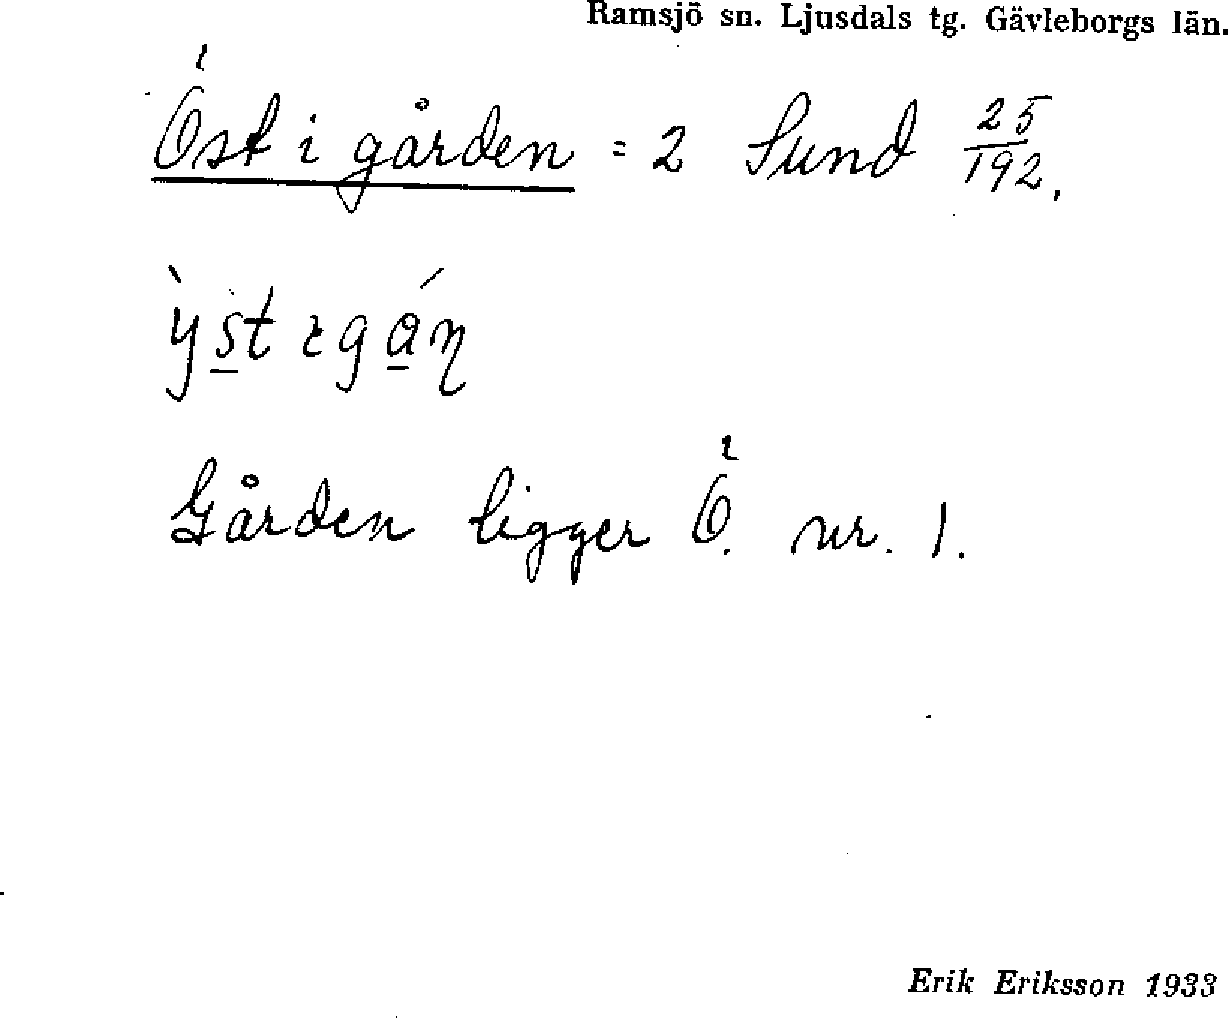 Ramsjö sn. Ljusdals tg. Gävleborgs län.
Öst i gården = 2 Sund 25/192.
ỳst ɩgáṇ
Gården ligger Ö. nr. 1.
Erik Eriksson 1933